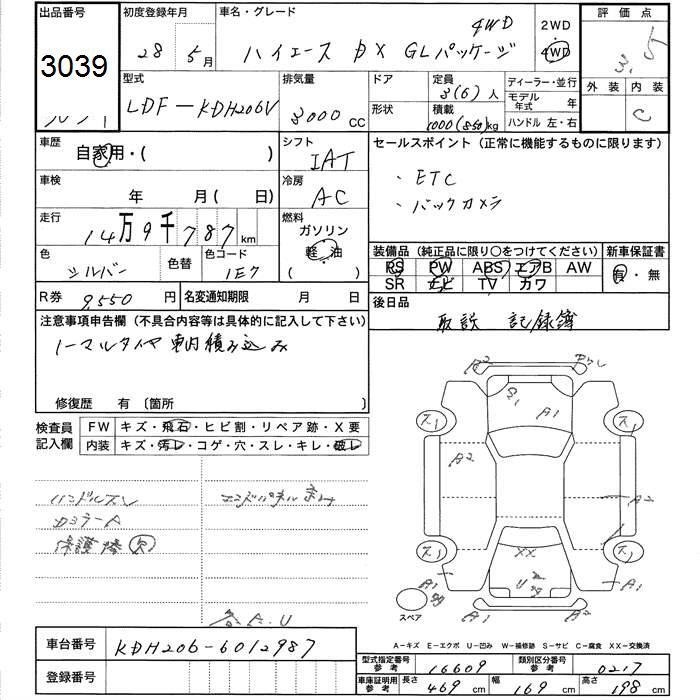 出品番号
3039
初度登録年月
28年 5月
車名・グレード
ハイエース DX GLパッケージ
4WD
2WD
4WD
評価点
3.5
外装 内装
C
型式
LDF-KDH206V
排気量
3000 CC
ドア
形状
定員
3(6)人
積載
1000(850)kg
ディーラー・並行
モデル年式 年
ハンドル 左・右
車歴
自家用・( )
シフト
IAT
車検
年 月( 日)
冷房
AC
走行
14万9千787km
燃料
ガソリン
軽油
( )
色
シルバー
色替
色コード
1E7
R券 9550円
名変通知期限 月 日
セールスポイント(正常に機能するものに限ります)
・ETC
・バックカメラ
装備品(純正品に限り〇をつけてください)
新車保証書
PS PW ABS エアB AW
SR ナビ TV カワ
有・無
後日品
取説 記録簿
注意事項申告欄(不具合内容等は具体的に記入して下さい)
ノーマルタイヤ 車内積み込み
修復歴 有〔箇所 〕
検査員記入欄
FW キズ・飛石・ヒビ割・リペア跡・X要
内装 キズ・汚レ・コゲ・穴・スレ・キレ・破レ
ハンドルスレ
カプラーA
保護棒 欠
エンドパネル
A2
A1
A2
A2
XX
U
A1
A1
A2
スペア
車台番号 KDH206-6012987
登録番号
A-キズ E-エクボ U-凹み W-補修跡 S-サビ C-腐食 XX-交換済
型式指定番号 参考 16609
類別区分番号 参考 0217
車庫証明用 参考 長さ 469 cm 幅 169 cm 高さ 198 cm